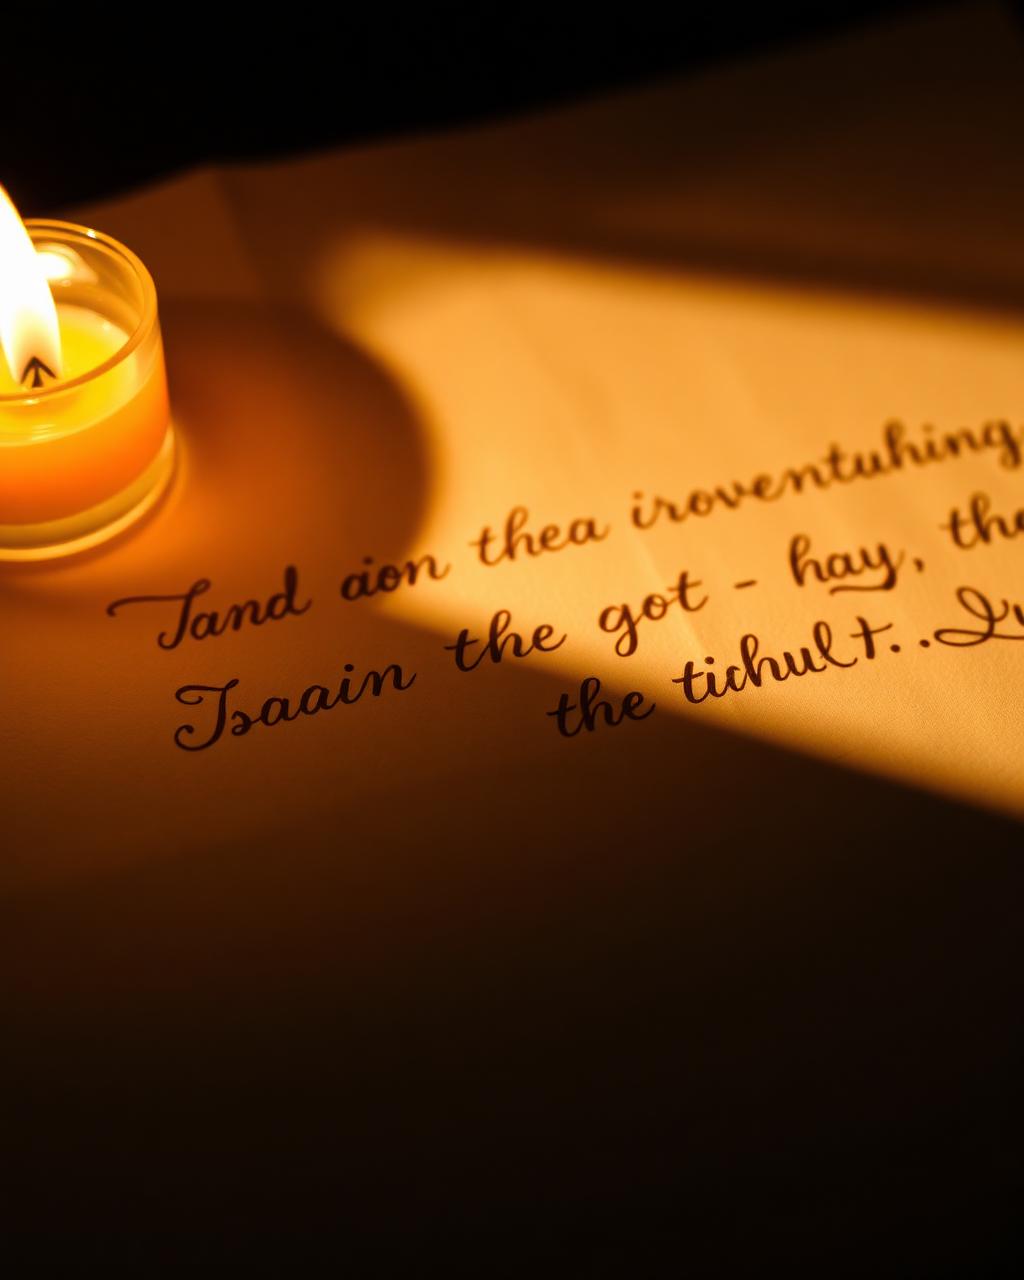 Tand aion thea iroventuhing
Isaain the got - hay, the
the tichult..